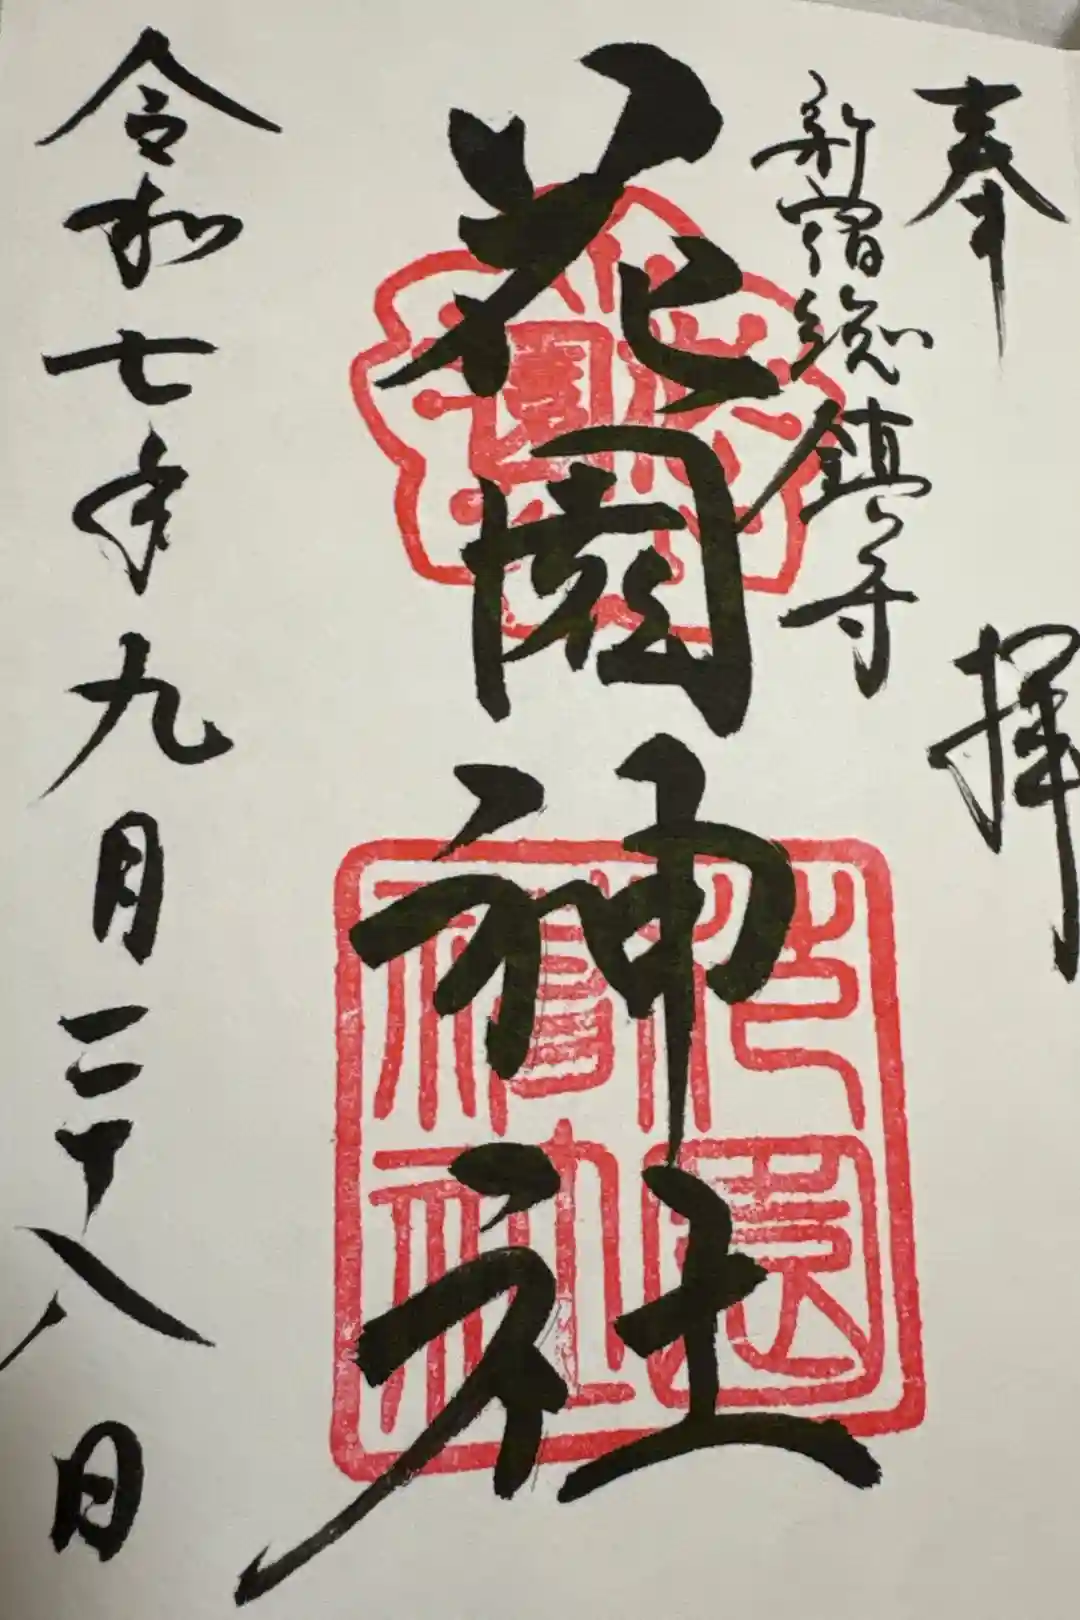 奉拝
新宿総鎮守
花園神社
令和七年九月二十八日
花園
神社